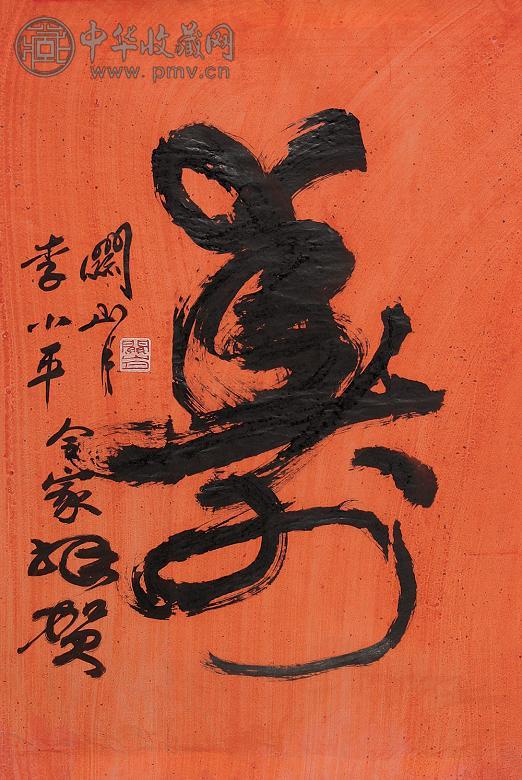 中华收藏网
www.pmv.cn
壽
關山月
李小平
全家 賀